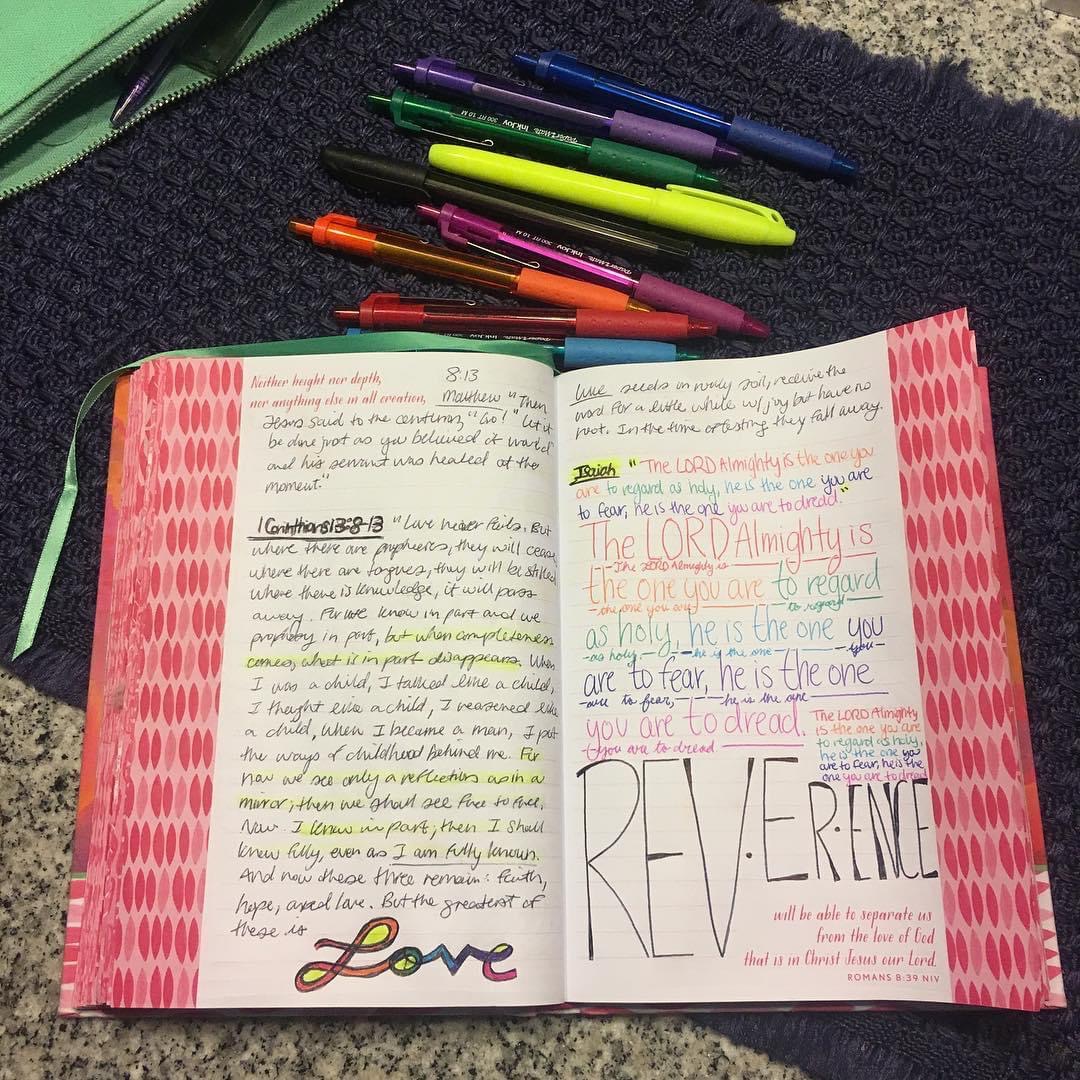 PaperMate InkJoy 300 RT 1.0 M
PaperMate InkJoy 300 RT 1.0 M
PaperMate InkJoy 300 RT 1.0 M
Neither height nor depth,
nor anything else in all creation,
8:13
Matthew "Then
Jesus said to the centurion, "Go! Let it
be done just as you believed it would"
and his servant was healed at the
moment."
1 Corinthians 13:8-13 "Love never fails. But
where there are prophecies, they will cease,
where there are tongues, they will be stilled
where there is knowledge, it will pass
away. For we know in part and we
prophesy in part, but when completeness
comes, what is in part disappears. When
I was a child, I talked like a child,
I thought like a child, I reasoned like
a child, when I became a man, I put
the ways of childhood behind me. For
now we see only a reflection as in a
mirror; then we shall see face to face.
Now I know in part; then I shall
know fully, even as I am fully known.
And now these three remain: faith,
hope, and love. But the greatest of
these is
Love
Luke seeds in rocky soil, receive the
word for a little while w/ joy but have no
root. In the time of testing they fall away.
Isaiah "The LORD Almighty is the one you
are to regard as holy, he is the one you are
to fear, he is the one you are to dread."
The LORD Almighty is
The LORD Almighty is
the one you are to regard
the one you are to regard
as holy, he is the one you
as holy, he is the one you
are to fear, he is the one
are to fear, he is the one
you are to dread.
you are to dread
The LORD Almighty
is the one you are
to regard as holy,
he is the one you
are to fear, he is the
one you are to dread
REV·ER·ENCE
will be able to separate us
from the love of God
that is in Christ Jesus our Lord.
ROMANS 8:39 NIV